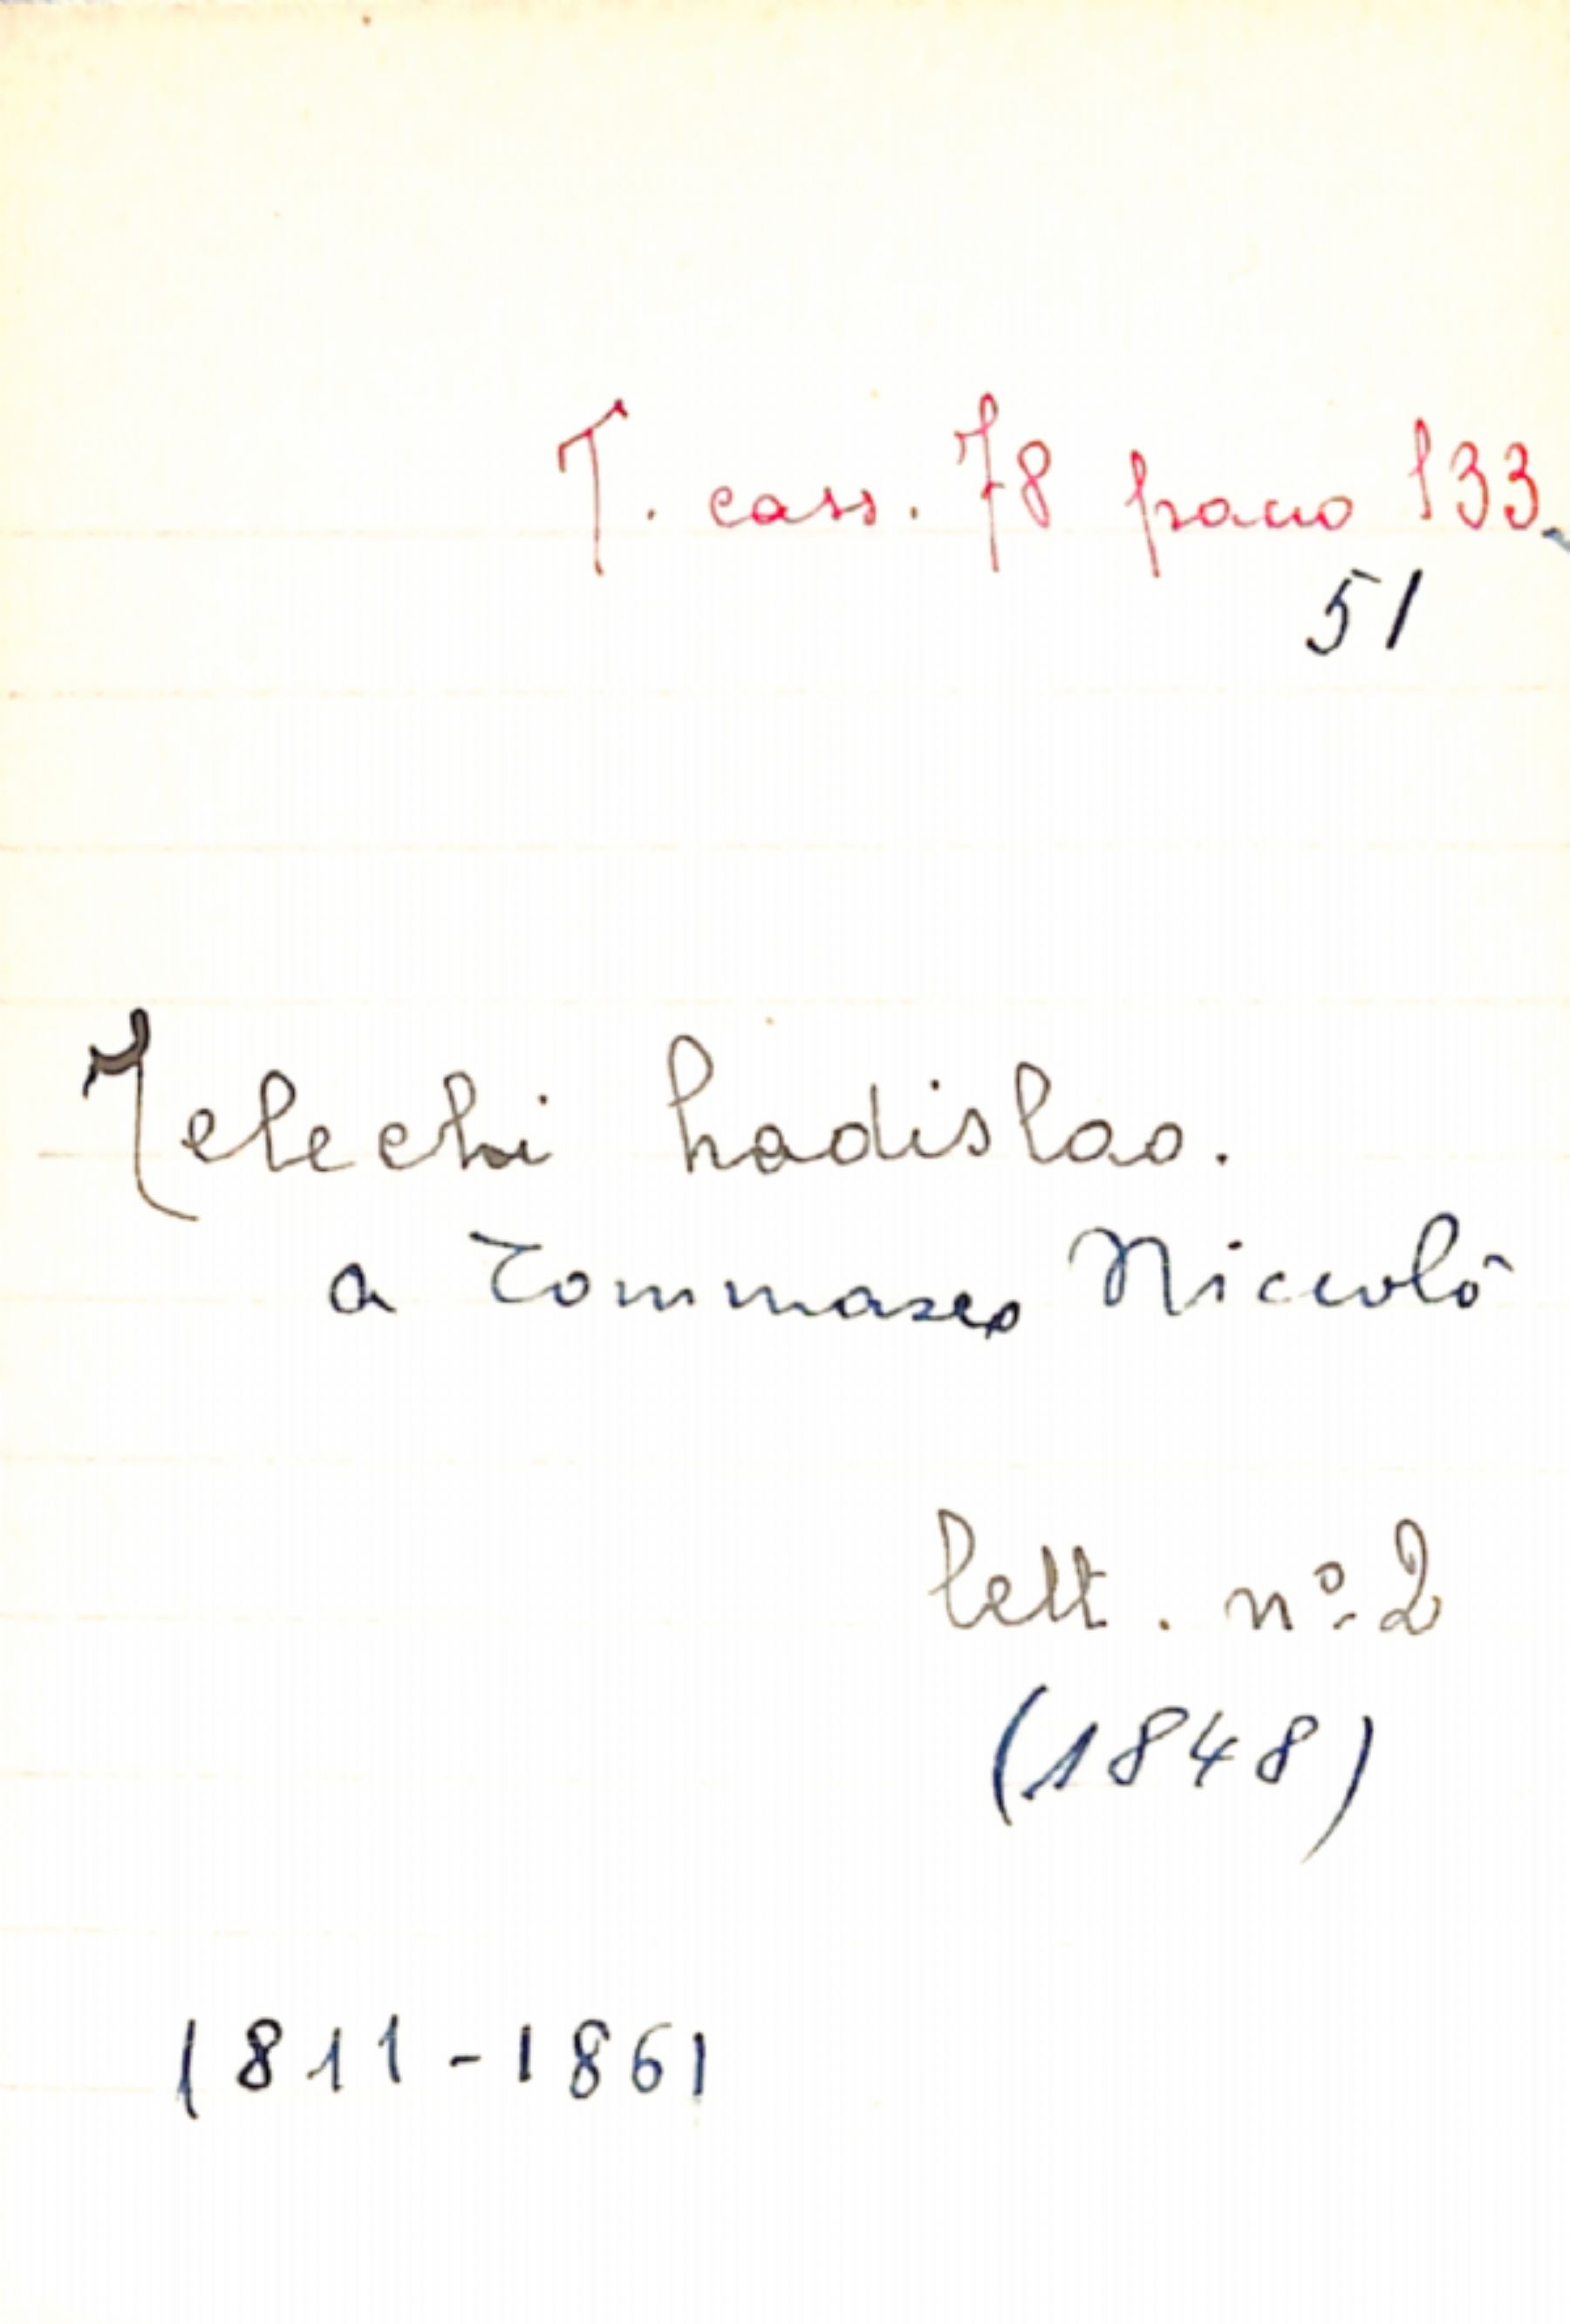 T. cass. 78 pacco 133.
51
Telechi Ladislao.
a Tommaseo Niccolò
lett. nº 2
(1848)
1811-1861